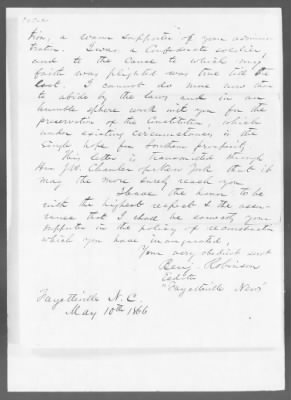 tion, a warm supporter of your adminis-
tration. I was a Confederate soldier,
and to the Cause to which my
faith was plighted was true till the
last. I cannot do more now than
to abide by the laws and in an
humble sphere work with you for the
preservation of the Constitution, which
under existing circumstances is the
single hope for Southern prosperity
This letter is transmitted through
Hon J.W. Chanler of New York that it
may the more surely reach you
I have the honor to be
with the highest respect & the assu-
rance that I shall be earnestly your
supporter in the policy of reconstruction
which you have inaugurated,
Your very obedient servt
Benj. Robinson
Editor
"Fayetteville News"
Fayetteville N.C.
May 10th 1866